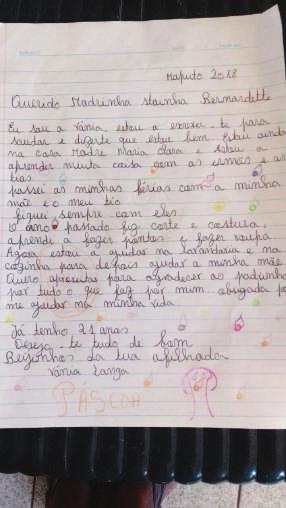 Maputo 2018
Querido Madrinha Bernardette
Eu sou a vânia, estou a escrever-te para
saudar e dizerte que estou bem. Estou ainda
na casa Madre Maria Clara e estou a
aprender muita coisa com as irmãs e as
tias
passei as minhas férias com a minha
mãe e o meu tio
fiquei sempre com eles.
O ano passado fiz corte e costura,
aprendi a fazer e fazer roupa
Agora estou a ajudar na lavandaria e na
cozinha para depois ajudar a minha mãe
Quero aproveitar para agradecer ao padrinho
por tudo o que fez por mim obrigada por
me ajudar na minha vida
Já tenho 21 anos
Desejo-te tudo de bom
Beijinhos da tua afilhada
Vânia Langa
PÁSCOA